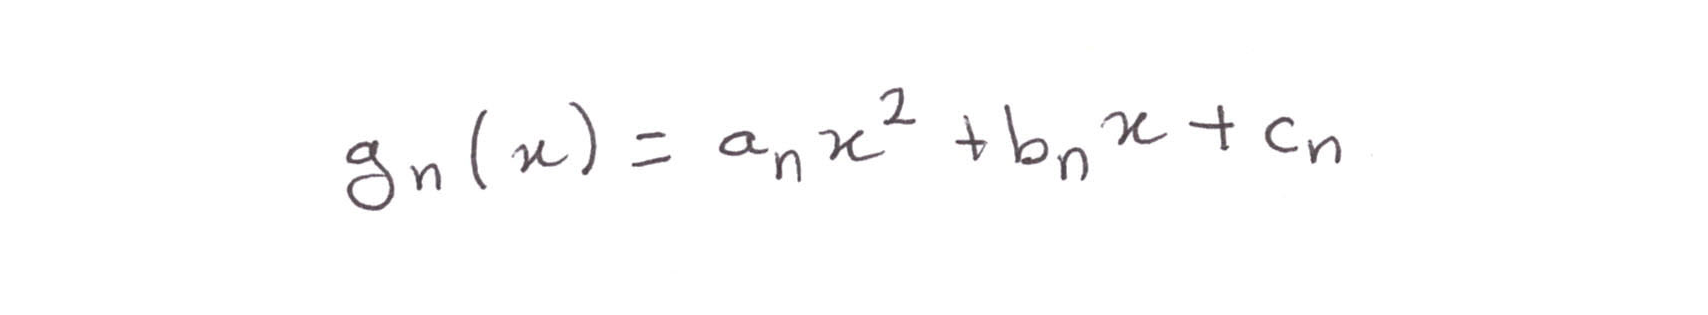 gₙ(x) = aₙx² + bₙx + cₙ